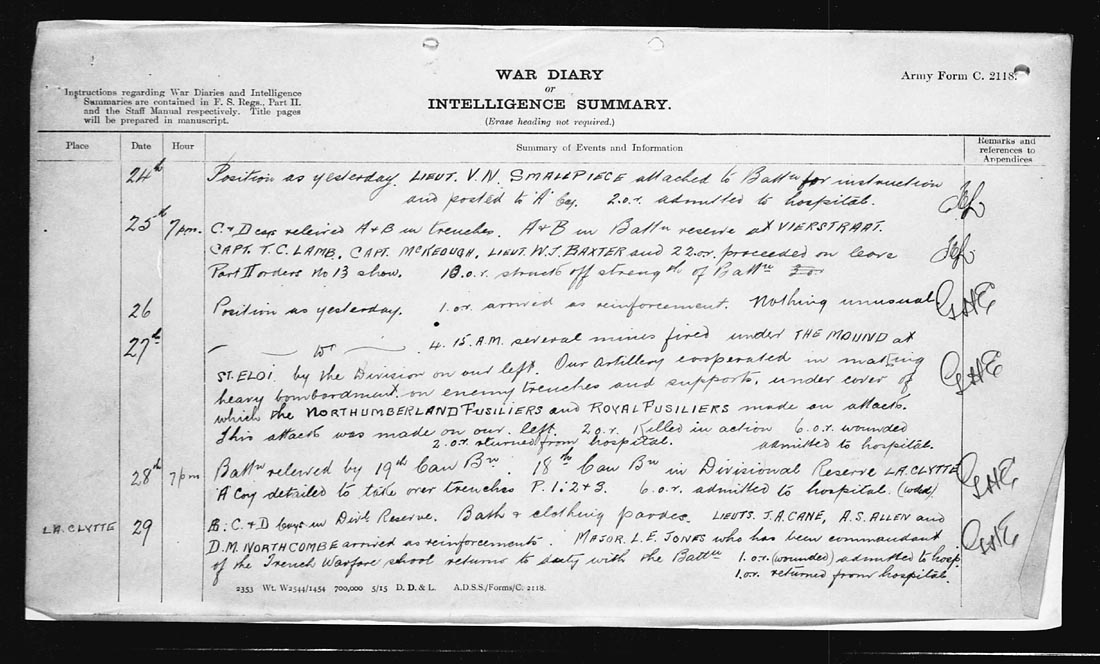 WAR DIARY
or
INTELLIGENCE SUMMARY.
(Erase heading not required.)
Army Form C. 2118.
Instructions regarding War Diaries and Intelligence
Summaries are contained in F. S. Regs., Part II.
and the Staff Manual respectively. Title pages
will be prepared in manuscript.
Place Date Hour Summary of Events and Information Remarks and references to Appendices
24th Position as yesterday. LIEUT. V.N. SMALLPIECE attached to Battn for instruction
and posted to "A" Coy. 2.o.r. admitted to hospital.
25th 7pm. C & D coys relieved A & B in trenches. A & B in Battn reserve at VIERSTRAAT.
CAPT. T.C. LAMB, CAPT. McKEOUGH, LIEUT. W.J. BAXTER and 22.o.r. proceeded on leave
Part II orders No 13 show. 18.o.r. struck off strength of Battn
26 Position as yesterday. 1.o.r. arrived as reinforcement. Nothing unusual. GHE
27th 4.15.A.M. several mines fired under THE MOUND at
ST. ELOI by the Division on our left. Our Artillery cooperated in making
heavy bombardment on enemy trenches and supports, under cover of GHE
which the NORTHUMBERLAND FUSILIERS and ROYAL FUSILIERS made an attack.
This attack was made on our left. 2.o.r. killed in action 6.o.r. wounded
2.o.r. returned from hospital. admitted to hospital.
28th 7pm Battn relieved by 19th Can Bn. 18th Can Bn in Divisional Reserve LA CLYTTE GHE
A Coy detailed to take over trenches P. 1. 2 & 3. 6.o.r. admitted to hospital. (wded)
LA. CLYTTE 29 B. C & D Coys in Divl Reserve. Bath & clothing parades. LIEUTS. J.A. CANE, A.S. ALLEN and
D.M. NORTHCOMBE arrived as reinforcements. MAJOR. L.E. JONES who has been commandant GHE
of the Trench Warfare school returns to duty with the Battn 1.o.r. (wounded) admitted to hosp.
1.o.r. returned from hospital.
2353 Wt. W2544/1454 700,000 5/15 D. D. & L. A.D.S.S./Forms/C. 2118.